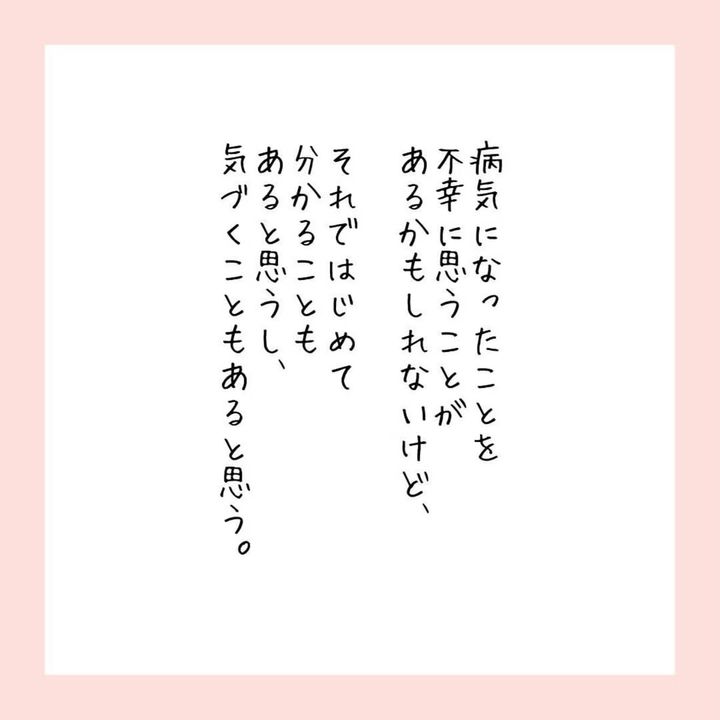 病気になったことを
不幸に思うことが
あるかもしれないけど、
それではじめて
分かることも
あると思うし、
気づくこともあると思う。